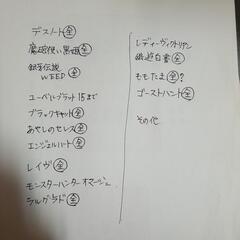 デスノート 全
魔砲使い黒姫 全
銀牙伝説
WEED 全
ユーベルブラット 15まで
ブラックキャット 全
あやしのセレス 全
エンジェルハート 全
レイヴ 全
モンスターハンター オマージュ
ラルグラド 全
レディーヴィクトリアン
幽遊白書 全
ももたま 全?
ゴーストハント 全
その他